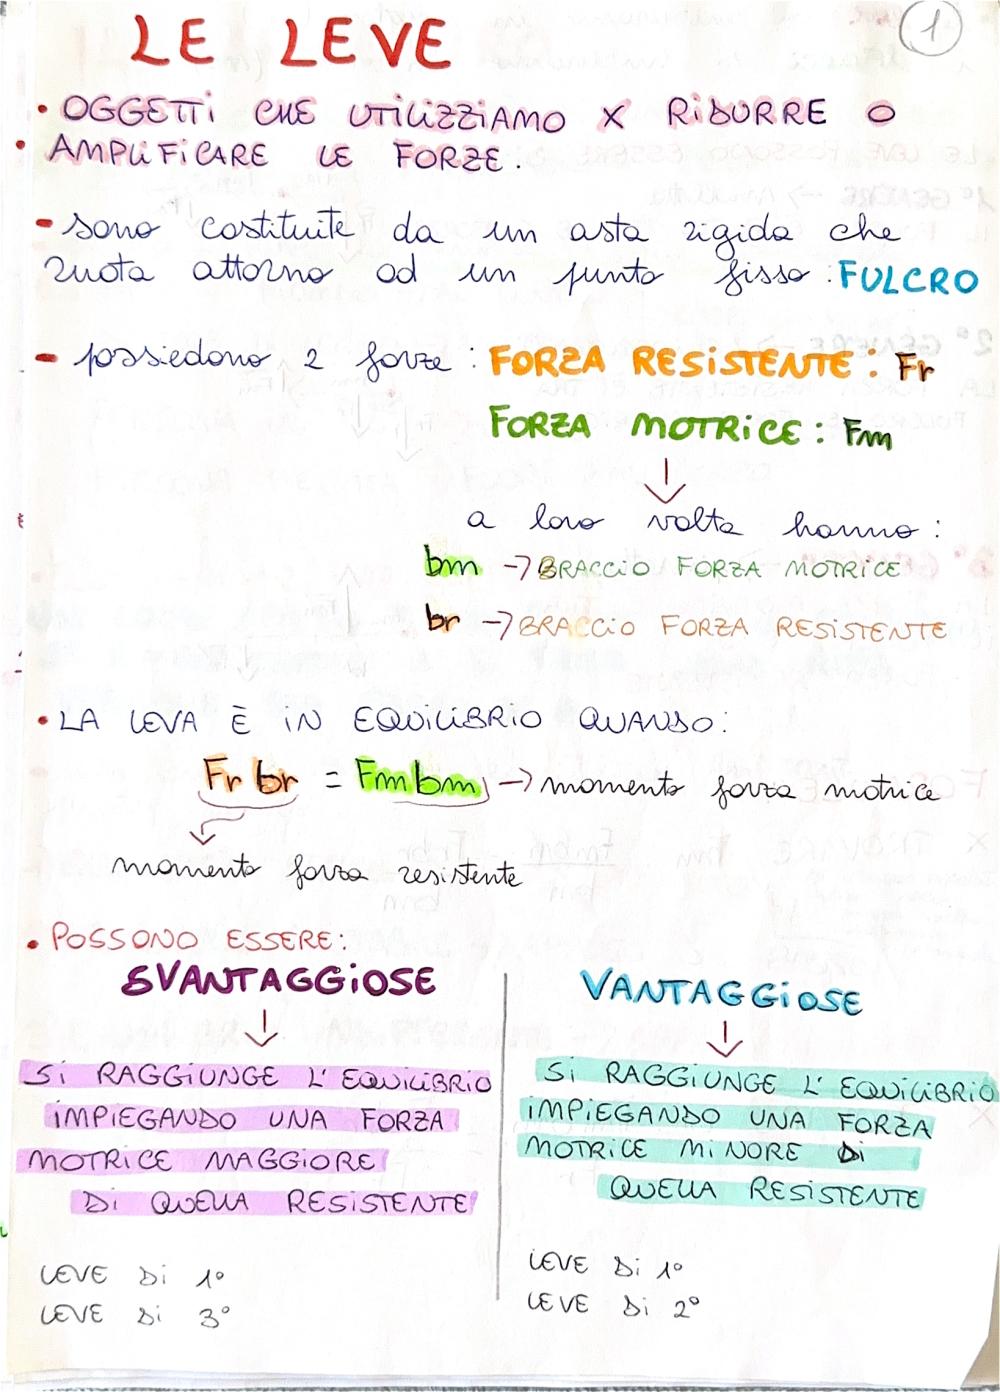 1
LE LEVE
• OGGETTI CHE UTILIZZIAMO X RIDURRE O
• AMPLIFICARE LE FORZE.
- sono costituite da un asta rigida che
ruota attorno ad un punto fisso: FULCRO
- possiedono 2 forze: FORZA RESISTENTE: Fr
FORZA MOTRICE: Fm
↓
a loro volta hanno:
bm → BRACCIO FORZA MOTRICE
br → BRACCIO FORZA RESISTENTE
• LA LEVA È IN EQUILIBRIO QUANDO:
Fr br = Fm bm → momento forza motrice
momento forza resistente
• POSSONO ESSERE:
SVANTAGGIOSE
↓
SI RAGGIUNGE L'EQUILIBRIO
IMPIEGANDO UNA FORZA
MOTRICE MAGGIORE
DI QUELLA RESISTENTE
LEVE DI 1°
LEVE DI 3°
VANTAGGIOSE
↓
SI RAGGIUNGE L'EQUILIBRIO
IMPIEGANDO UNA FORZA
MOTRICE MINORE DI
QUELLA RESISTENTE
LEVE DI 1°
LEVE DI 2°